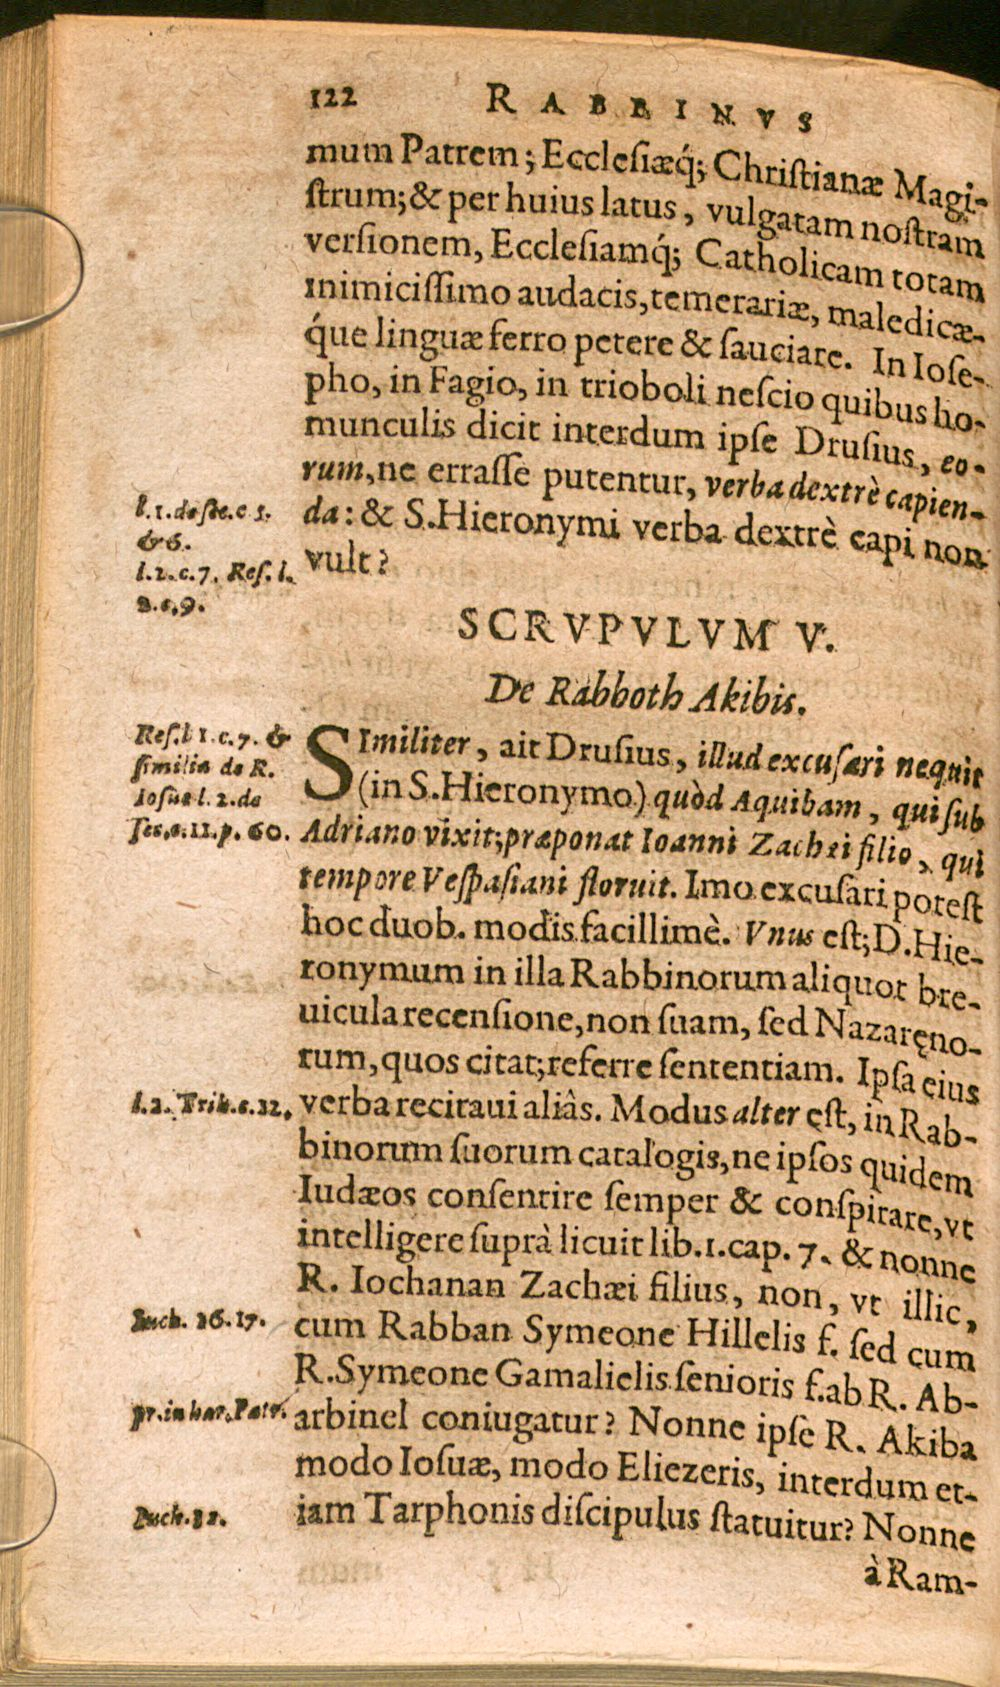 122 RABBINVS
mum Patrem; Ecclesiæq́; Christianæ Magi-
strum; & per huius latus, vulgatam nostram
versionem, Ecclesiamq́; Catholicam totam
inimicissimo audacis, temerariæ, maledicæ-
q́ue linguæ ferro petere & sauciare. In Iose-
pho, in Fagio, in trioboli nescio quibus ho-
munculis dicit interdum ipse Drusius, eo-
rum, ne errasse putentur, verba dextrè capien-
da: & S. Hieronymi verba dextrè capi non
vult?
&6.
l.2.c.7. Res. l.
SCRVPVLVM V.
De Rabboth Akibis.
Res. l 1.c.7. &
similia de R.
Iosue l. 2. de
Tes.c.11.p. 60.
SImiliter, ait Drusius, illud excusari nequit
(in S. Hieronymo) quòd Aquibam, qui sub
Adriano vixit; præponat Ioanni Zachæi filio, qui
tempore Vespasiani floruit. Imo excusari potest
hoc duob. modis facillimè. Vnus est; D. Hie-
ronymum in illa Rabbinorum aliquot bre-
uicula recensione, non suam, sed Nazaręno-
rum, quos citat; referre sententiam. Ipsa eius
l.2. Trih.c.22.
verba recitaui aliâs. Modus alter est, in Rab-
binorum suorum catalogis, ne ipsos quidem
Iudæos consentire semper & conspirare, vt
intelligere suprà licuit lib. 1. cap. 7. & nonne
R. Iochanan Zachæi filius, non, vt illic,
Iuch. 16.17.
cum Rabban Symeone Hillelis f. sed cum
R. Symeone Gamalielis senioris f. ab R. Ab-
pr.in har. Patr.
arbinel coniugatur? Nonne ipse R. Akiba
modo Iosuæ, modo Eliezeris, interdum et-
iam Tarphonis discipulus statuitur? Nonne
à Ram-